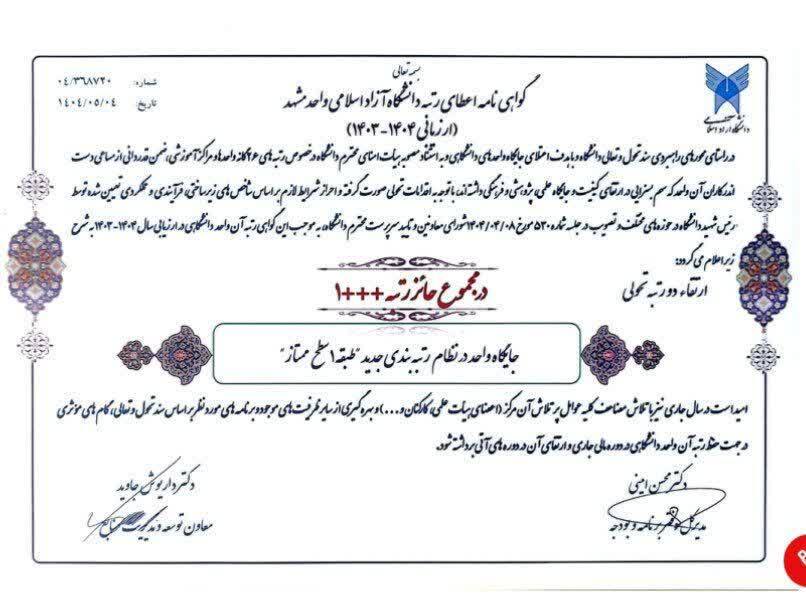 بسمه تعالی
گواهی نامه اعطای رتبه دانشگاه آزاد اسلامی واحد مشهد
(ارزیابی ۱۴۰۴-۱۴۰۳)
شماره: ۰۴/۳۶۸۷۲۰
تاریخ: ۱۴۰۴/۰۵/۰۴
دانشگاه آزاد اسلامی
در راستای محورهای راهبردی سند تحول و تعالی دانشگاه و با هدف اعتلای جایگاه واحدهای دانشگاهی و به استناد مصوبه هیات امنای محترم دانشگاه درخصوص رتبه های ۲۶گانه واحدها و مراکز آموزشی، ضمن قدردانی از مساعی دست
اندرکاران آن واحد که سهم بسزایی در ارتقای کیفیت و جایگاه علمی، پژوهشی و فرهنگی داشته اند، با توجه به اقدامات تحولی صورت گرفته و احراز شرایط لازم بر اساس شاخص های زیرساختی، فرآیندی و عملکردی تعیین شده توسط
رئیس شهید دانشگاه در حوزه های مختلف و تصویب در جلسه شماره ۵۳۰ مورخ ۱۴۰۴/۰۴/۰۸ شورای معاونین و تایید سرپرست محترم دانشگاه، به موجب این گواهی رتبه آن واحد دانشگاهی در ارزیابی سال ۱۴۰۴-۱۴۰۳ به شرح
زیر اعلام می گردد:
ارتقاء دو رتبه تحولی
در مجموع حائز رتبه +++۱
جایگاه واحد در نظام رتبه بندی جدید "طبقه ۱ سطح ممتاز"
امید است در سال جاری نیز با تلاش مضاعف کلیه عوامل پر تلاش آن مرکز (اعضای هیات علمی، کارکنان و...) و بهره گیری از سایر ظرفیت های موجود و برنامه های مورد نظر بر اساس سند تحول و تعالی، گام های مؤثری
در جهت حفظ رتبه آن واحد دانشگاهی در دوره مالی جاری و ارتقای آن در دوره های آتی برداشته شود.
دکتر محسن امینی
مدیرکل دفتر برنامه و بودجه
دکتر داریوش جاوید
معاون توسعه و مدیریت منابع